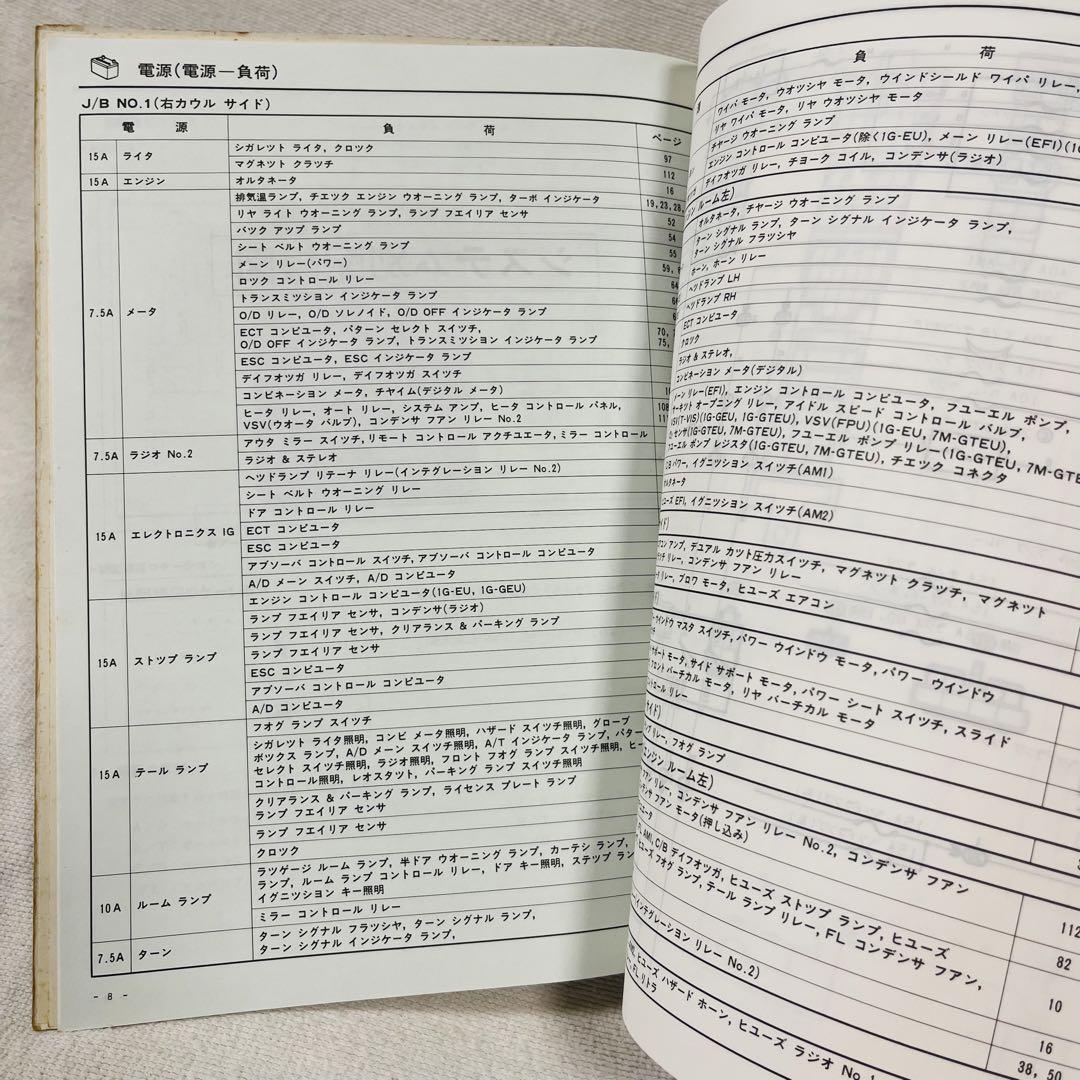 電源(電源―負荷)
J/B NO.1(右カウル サイド)
電 源 負 荷 ページ
15A ライタ
シガレツト ライタ, クロツク 97
マグネツト クラツチ 112
15A エンジン オルタネータ 16
7.5A メータ
排気温ランプ, チエツク エンジン ウオーニング ランプ, ターボ インジケータ 19, 23, 28,
リヤ ライト ウオーニング ランプ, ランプ フエイリア センサ 52
バツク アツプ ランプ 54
シート ベルト ウオーニング ランプ 55
メーン リレー(パワー) 59,
ロツク コントロール リレー 64
トランスミツシヨン インジケータ ランプ
O/D リレー, O/D ソレノイド, O/D OFF インジケータ ランプ
ECT コンピユータ, パターン セレクト スイツチ, 70,
O/D OFF インジケータ ランプ, トランスミツシヨン インジケータ ランプ 75,
ESC コンピユータ, ESC インジケータ ランプ
デイフオツガ リレー, デイフオツガ スイツチ
コンビネーシヨン メータ, チヤイム(デジタル メータ)
ヒータ リレー, オート リレー, システム アンプ, ヒータ コントロール パネル, 108
VSV(ウオータ バルブ), コンデンサ フアン リレー No.2
7.5A ラジオ No.2
アウタ ミラー スイツチ, リモート コントロール アクチユエータ, ミラー コントロール
ラジオ & ステレオ
15A エレクトロニクス IG
ヘツドランプ リテーナ リレー(インテグレーシヨン リレー No.2)
シート ベルト ウオーニング リレー
ドア コントロール リレー
ECT コンピユータ
ESC コンピユータ
アブソーバ コントロール スイツチ, アブソーバ コントロール コンピユータ
A/D メーン スイツチ, A/D コンピユータ
15A ストツプ ランプ
エンジン コントロール コンピユータ(1G-EU, 1G-GEU)
ランプ フエイリア センサ, コンデンサ(ラジオ)
ランプ フエイリア センサ, クリアランス & パーキング ランプ
ランプ フエイリア センサ
ESC コンピユータ
アブソーバ コントロール コンピユータ
A/D コンピユータ
15A テール ランプ
フオグ ランプ スイツチ
シガレツト ライタ照明, コンビ メータ照明, ハザード スイツチ照明, グローブ
ボツクス ランプ, A/D メーン スイツチ照明, A/T インジケータ ランプ, パター
セレクト スイツチ照明, ラジオ照明, フロント フオグ ランプ スイツチ照明, ヒー
コントロール照明, レオスタツト, パーキング ランプ スイツチ照明
クリアランス & パーキング ランプ, ライセンス プレート ランプ
ランプ フエイリア センサ
ランプ フエイリア センサ
クロツク
10A ルーム ランプ
ラツゲージ ルーム ランプ, 半ドア ウオーニング ランプ, カーテシ ランプ,
ランプ, ルーム ランプ コントロール リレー, ドア キー照明, ステツプ ラン
イグニツシヨン キー照明
ミラー コントロール リレー
7.5A ターン
ターン シグナル フラツシヤ, ターン シグナル ランプ,
ターン シグナル インジケータ ランプ,
- 8 -
負 荷
ワイパ モータ, ウオツシヤ モータ, ウインドシールド ワイパ リレー,
リヤ ワイパ モータ, リヤ ウオツシヤ モータ
チヤージ ウオーニング ランプ
エンジン コントロール コンピユータ(除く1G-EU), メーン リレー(EFI)
デイフオツガ リレー, チヨーク コイル, コンデンサ(ラジオ)
ルーム左)
オルタネータ, チヤージ ウオーニング ランプ
ターン シグナル ランプ, ターン シグナル インジケータ ランプ,
ターン シグナル フラツシヤ
ホーン, ホーン リレー
ヘツドランプ LH
ヘツドランプ RH
ECT コンピユータ
クロツク
ラジオ & ステレオ,
コンビネーシヨン メータ(デジタル)
メーン リレー(EFI), エンジン コントロール コンピユータ, フユーエル ポンプ,
サーキツト オープニング リレー, アイドル スピード コントロール バルブ,
VSV(T-VIS)(1G-GEU, 1G-GTEU), VSV(FPU)(1G-EU, 7M-GTEU),
センサ(1G-GTEU, 7M-GTEU), フユーエル ポンプ リレー(1G-GTEU, 7M-GTEU)
フユーエル ポンプ レジスタ(1G-GTEU, 7M-GTEU), チエツク コネクタ
パワー, イグニツシヨン スイツチ(AM1)
オルタネータ
ヒユーズ EFI, イグニツシヨン スイツチ(AM2)
イド)
アンプ, デユアル カツト圧力スイツチ, マグネツト クラツチ, マグネツト
リレー, コンデンサ フアン リレー
リレー, ブロワ モータ, ヒユーズ エアコン
ウインドウ マスタ スイツチ, パワー ウインドウ モータ, パワー ウインドウ
サポート モータ, サイド サポート モータ, パワー シート スイツチ, スライド
フロント バーチカル モータ, リヤ バーチカル モータ
コントロール リレー
サイド)
リレー, フオグ ランプ
エンジン ルーム左)
フアン リレー, コンデンサ フアン リレー No.2, コンデンサ フアン
コンデンサ フアン モータ(押し込み)
FL AM1, C/B デイフオツガ, ヒユーズ ストツプ ランプ, ヒユーズ 112
ヒユーズ フオグ ランプ, テール ランプ リレー, FL コンデンサ フアン, 82
インテグレーシヨン リレー No.2) 10
16
ヒユーズ ハザード ホーン, ヒユーズ ラジオ No.1 38, 50
FL リトラ